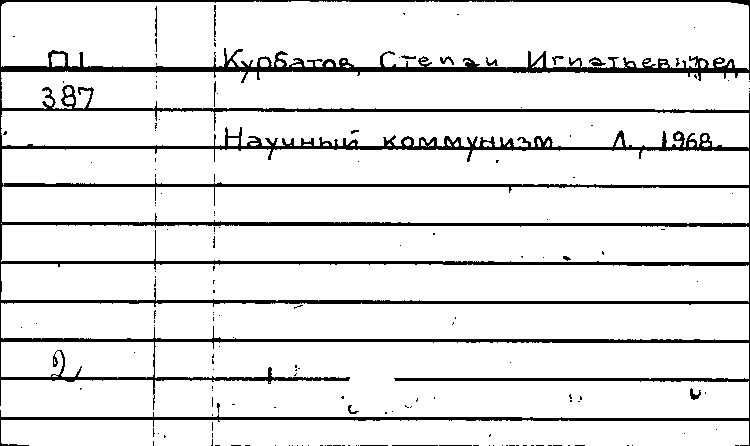 П1 Курбатов, Степан Игнатьевич, ред.
387
Научный коммунизм. Л., 1968.
2